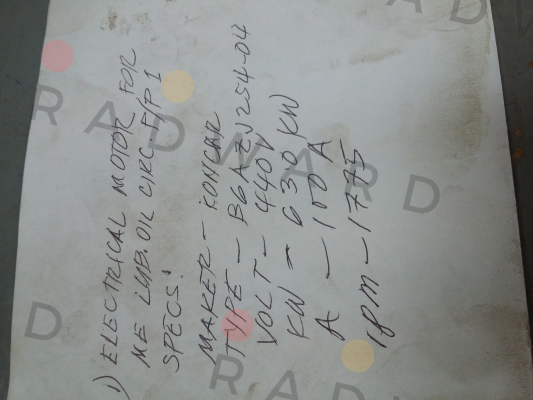 1) ELECTRICAL MOTOR FOR
ME LUB. OIL CIRC. P/P 1
SPECS:
MAKER - KONCAR
TYPE - B6A-ZJ254-04
VOLT - 440V
KW - 630 KW
A - 100 A
rpm - 1775
RADWARD
RADWARD